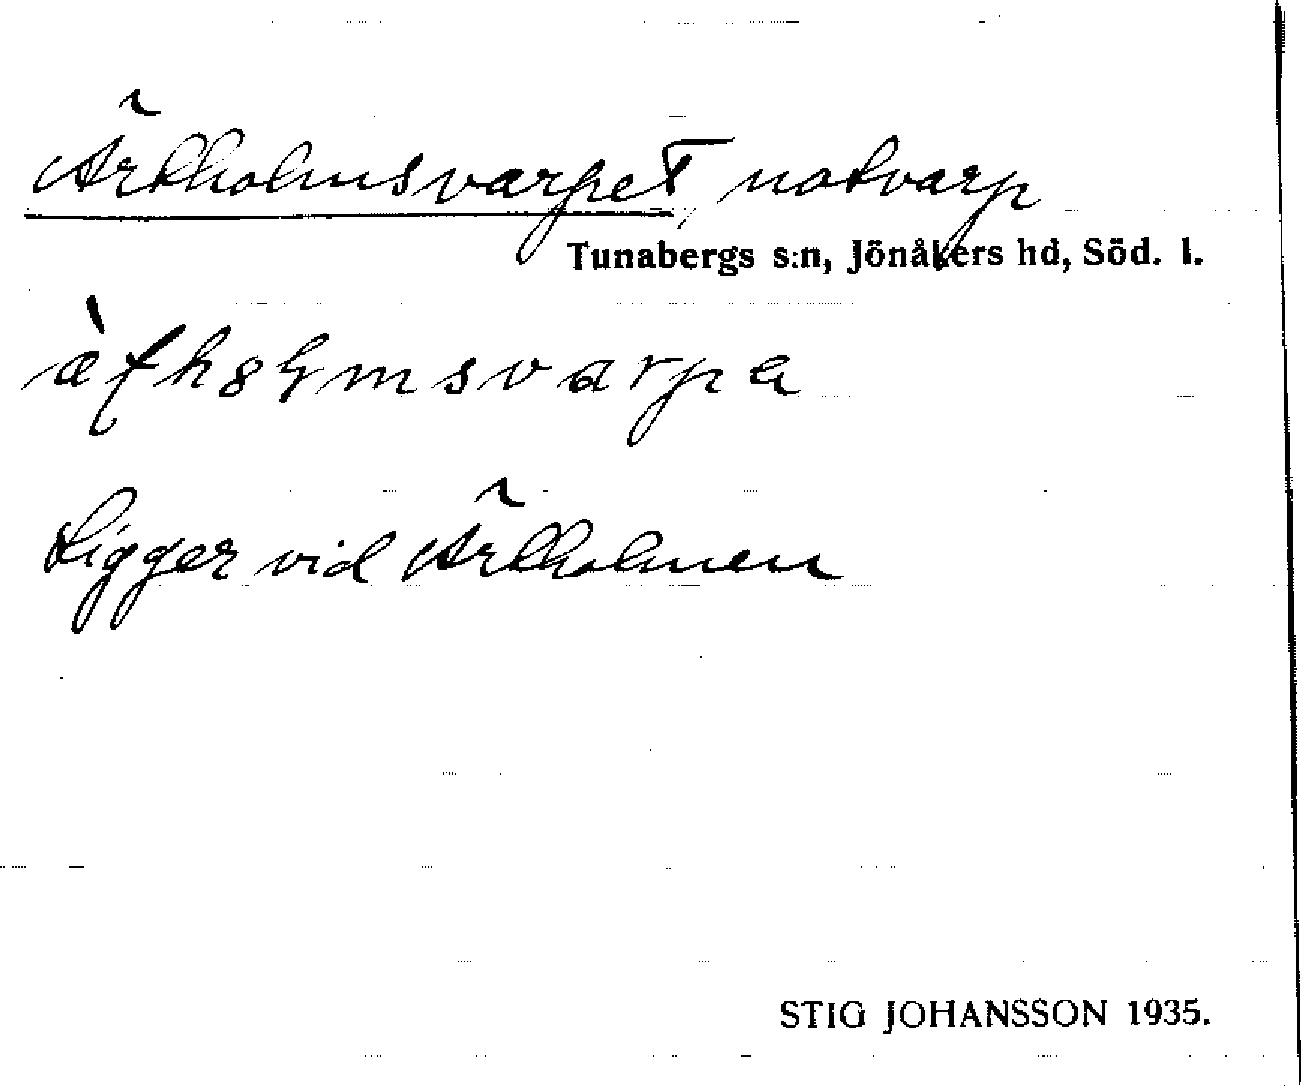 Ärtholmsvarpet, notvarp
Tunabergs s:n, Jönåkers hd, Söd. l.
Ligger vid Ärtholmen
STIG JOHANSSON 1935.